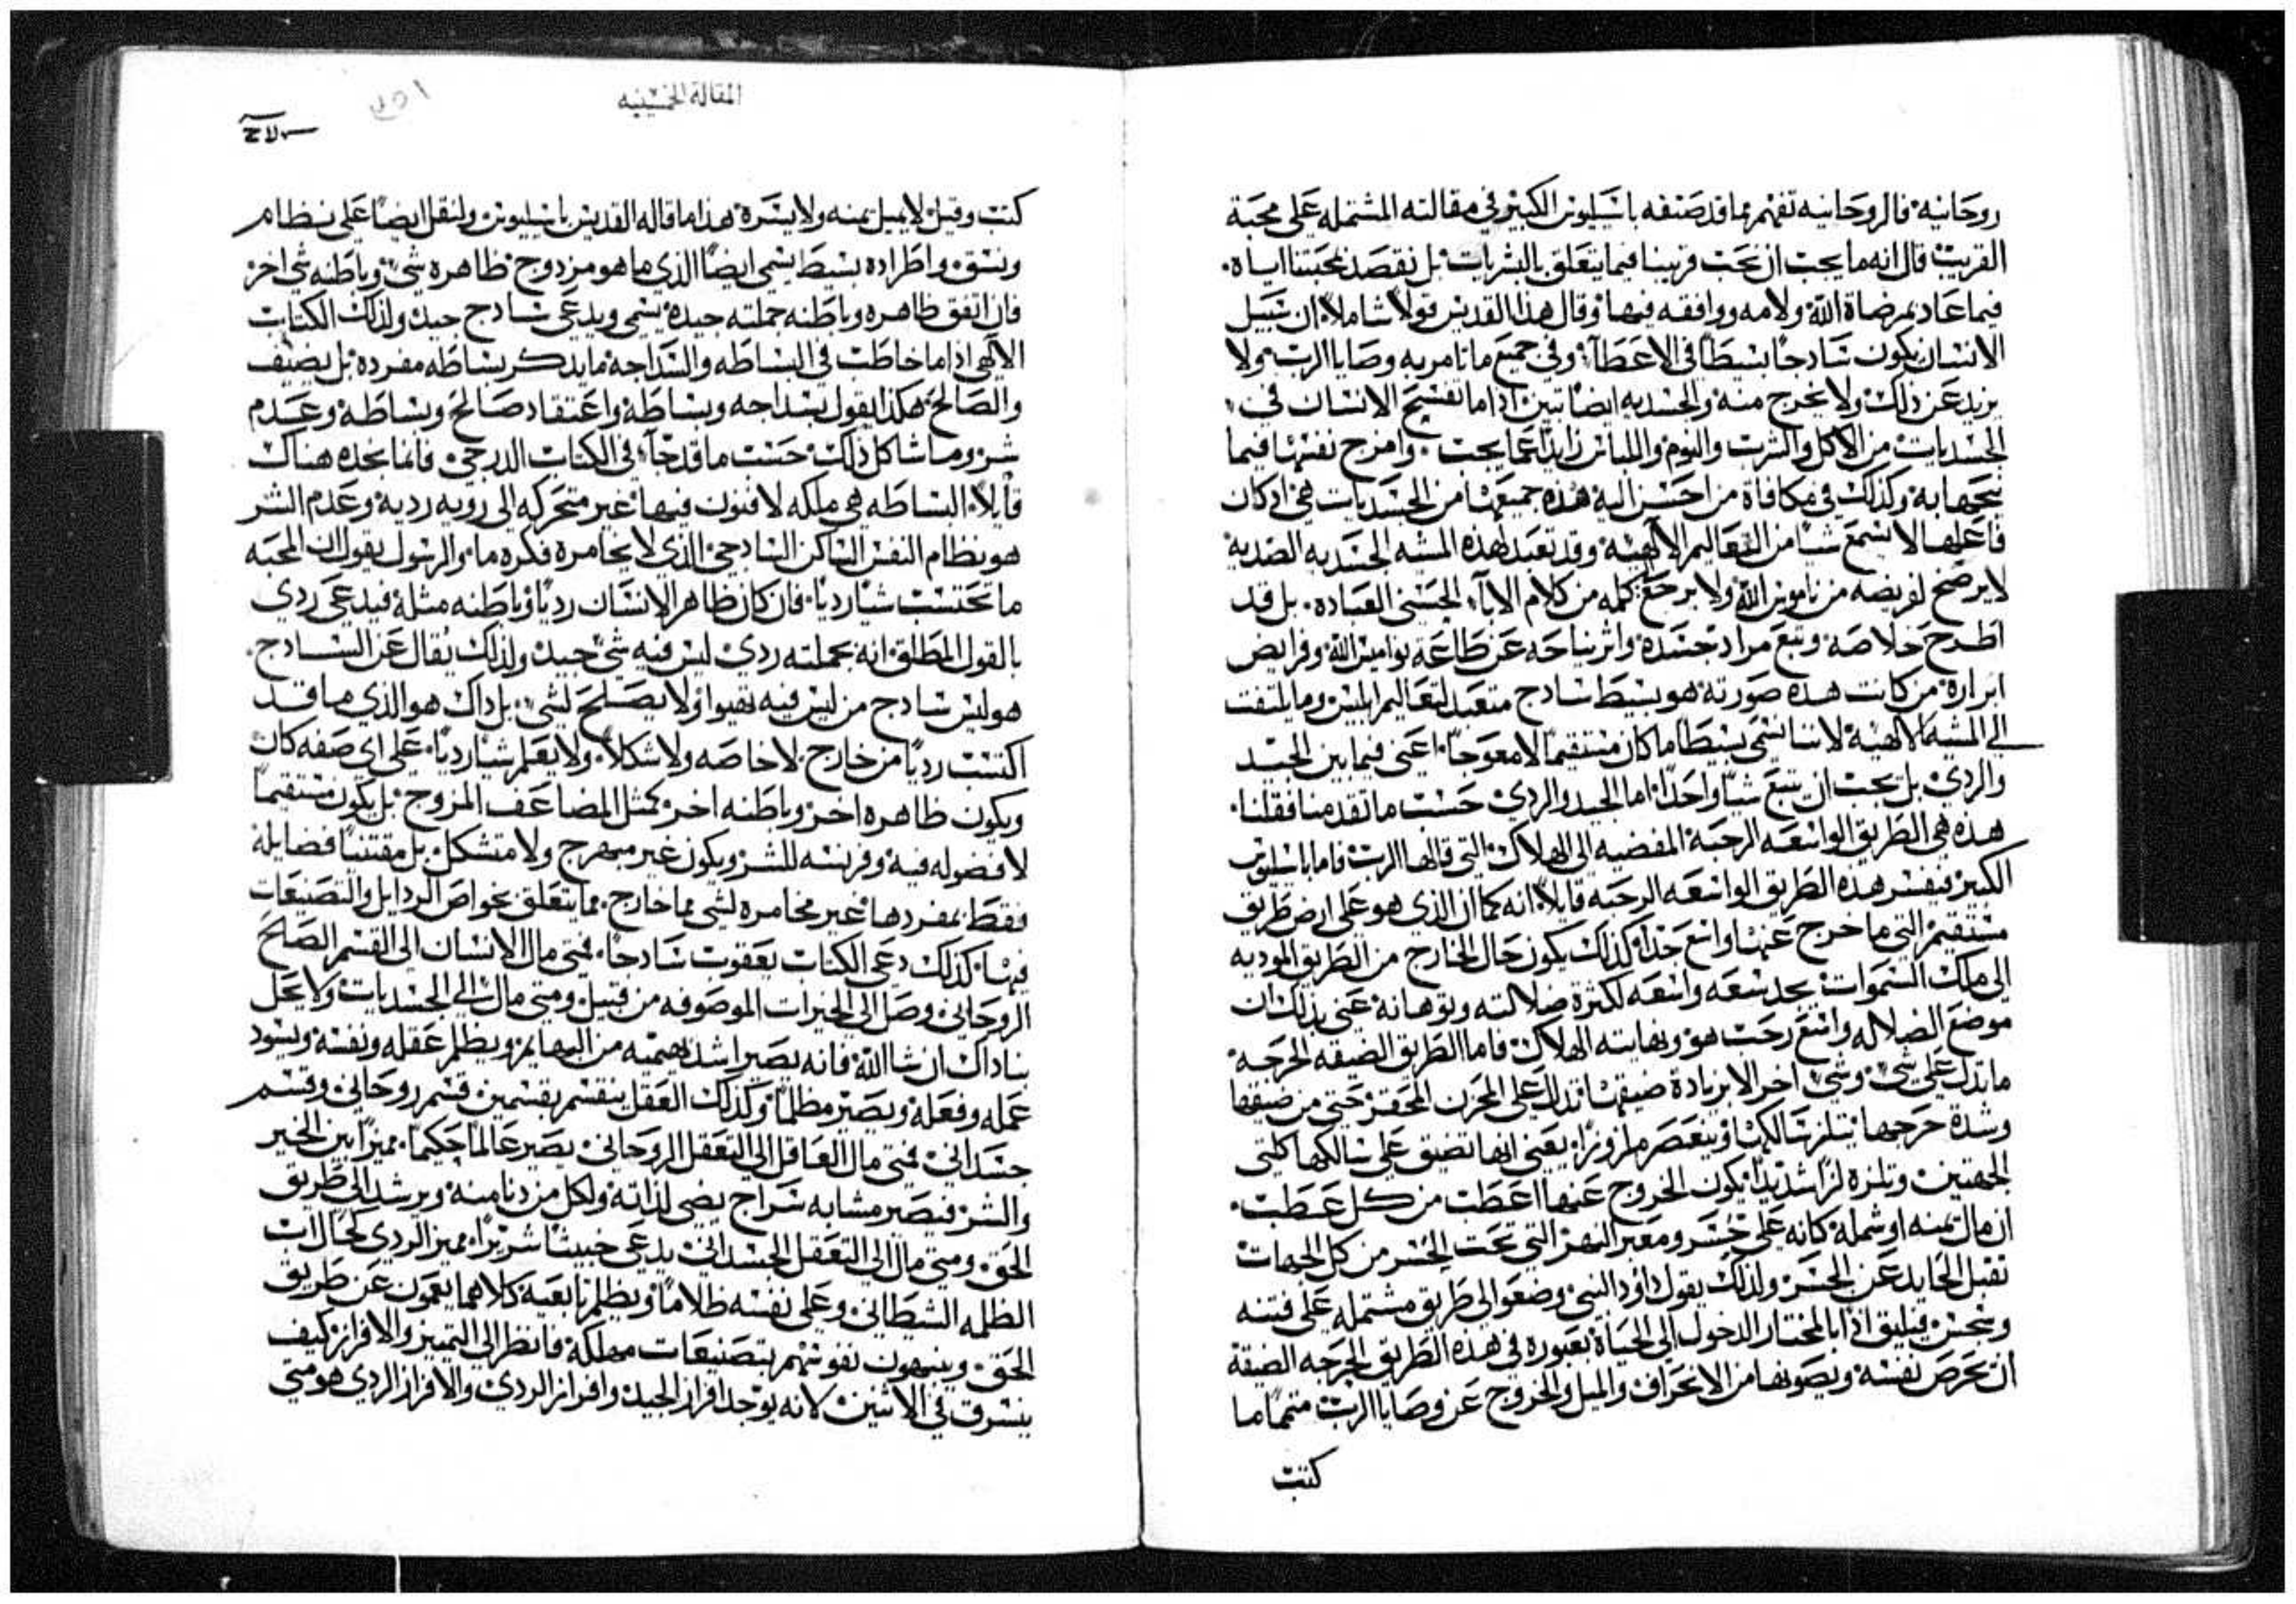 روحانيه فالروحانيه تفهم مما قد صنفه باسيليوس الكبير في مقالته المشتمله على محبة
القريب قال انه ما يجب ان نحب قريبنا فيما يتعلق بالبشريات بل نقصد بمحبتنا اياه
فيما عاد بمرضاة الله ولامه ووافقه فيها وقال هذا القديس قولاً شاملاً ان سبيل
الانسان يكون سادجاً بسيطاً في الاعطآ وفي جميع ما تامر به وصايا الرب ولا
يزيد عن ذلك ولا يخرج منه والجسديه ايضاً تبين اذا ما تفسح الانسان في
الجسديات من الاكل والشرب والنوم واللباس زايداً عما يجب وامزج نفسها فيما
يتجها به وكذلك في مكافاة من احسن اليه هذه جميعها من الجسديات هي اذ كان
فاعلها لا يسمع شياً من التعاليم الالهيه وقد تعبد لهذه المشيه الجسديه الضديه
لا يرضخ لفريضه من ناموس الله ولا يرجع كلمه من كلام الابآ الحسني العباده بل قد
اطرح خلاصه وتبع مراد جسده واثر نياحه عن طاعة نواميس الله وفرايض
ابراره من كانت هذه صورته هو بسيط سادج متعبد لتعاليم ابليس وما يلتفت
الى المشيه الالهيه لاننا نسمى بسيطاً ما كان مستقيماً لا معوجاً اعني فيما بين الجيد
والردي بل يجب ان نتبع شياً واحداً اما الجيد والردي حسب ما تقدمنا فقلنا
هذه هي الطريق الواسعه الرحبه المفضيه الى الهلاك التي قالها الرب فاما باسيليوس
الكبير فيفسر هذه الطريق الواسعه الرحبه قايلاً انه كما ان الذي هو على ارض طريق
مستقيم التي ما خرج عنها واسع جداً كذلك يكون حال الخارج من الطريق الموديه
الى ملك السموات يجد سعه واسعه لكثرة ضلالته وتوهانه عني بذلك ان
موضع الضلاله واسع رحب هو ونهايته الهلاك فاما الطريق الضيقه الحرجه
ما تدل على شي وشي اخر الا بزيادة ضيقها تدل على المحزن المحقر حتى من ضيقها
وشدة حرجها يتلزز سالكها وينعصر ملزوزاً يعني انها تضيق على سالكها كلتي
الجهتين وتلزه لزاً شديداً يكون الخروج عنها اعطب من كل عطب
ان مال يمنه او شمله كانه على جسر ومعبر النهر التي تحت الجسر من كل الجهات
تقبل الحايد عن الجسر ولذلك يقول داود النبي وضعوا لي طريق مشتمله على فتنه
وتجسس فيليق اذاً بالمختار الدخول الى الحياة بعبوره في هذه الطريق الحرجه الضيقه
ان يحرص نفسه ويصونها من الانحراف والميل والخروج عن وصايا الرب متمماً ما
كتب
المقالة الخمسينيه
١٥١
كتب وقيل لا يميل يمنه ولا يسره هذا ما قاله القديس باسيليوس ولنقل ايضاً على نظام
ونسق واطراده بسيط يسمى ايضاً الذي ما هو مزدوج ظاهره شي وباطنه شي اخر
فان اتفق ظاهره وباطنه جملته جيده يسمى ويدعى سادج جيد ولذلك الكتاب
الالهي اذا ما خاطب في البساطه والسداجه ما يذكر بساطه مفرده بل يضيف
والصالح هكذا يقول بسداجه وبساطه واعتقاد صالح وبساطه وعدم
شر وما شاكل ذلك حسب ما قد جآ في الكتاب الدرجي فانما يجده هناك
قايلاً البساطه هي ملكه لا فنون فيها غير متحركه الى رويه رديه وعدم الشر
هو نظام النفس الساكن السادجي الذي لا يخامره فكره ما والرسول يقول ان المحبه
ما تحتسب شياً ردياً فان كان ظاهر الانسان ردياً وباطنه مثله فيدعى ردي
بالقول المطلق انه بجملته ردي ليس فيه شي جيد ولذلك يقال عن السادج
هو ليس سادج من ليس فيه نقيوا ولا يصلح لشي بل ذاك هو الذي ما قد
اكتسب ردياً من خارج لا خاصه ولا شكلاً ولا يعلم شياً ردياً على اي صفه كان
ويكون ظاهره اخر وباطنه اخر كمثل المضاعف المزوج بل يكون مستقيماً
لا فضوله فيه وفريسه للشر ويكون غير مبهرج ولا متشكل بل مقتنياً فضايله
فقط بمفردها غير مخامره لشي مما خارج مما يتعلق بخواص الردايل والتصنيعات
فيها كذلك دعى الكتاب يعقوب سادجاً فمتى مال الانسان الى القسم الصالح
الروحاني وصل الى الخيرات الموصوفه من قبيل ومتى مال الى الجسديات ولا يحل
بنا ذاك ان شا الله فانه يصير اشد بهيميه من البهايم ويظلم عقله ونفسه ويسود
عمله وفعله ويصير مظلماً وكذلك العقل ينقسم بقسمين قسم روحاني وقسم
جسداني فمتى مال العاقل الى التعقل الروحاني يصير عالماً حكيماً مميزاً بين الخير
والشر فيصير مشابه سراج يضي لذاته ولكل من دنا منه ويرشد الى طريق
الحق ومتى مال الى التعقل الجسداني يدعى خبيثاً شريراً مميز الردي كحالات
الظلمه الشيطاني وعلى نفسه ظلاماً ويظلم تابعيه كلاهما يعمون عن طريق
الحق وينبهون نفوسهم بتصنيعات مهلكه فانظر الى التمييز والافراز كيف
ينسرق في الاثنين لانه يوجد افراز الجيد وافراز الردي والافراز الردي هو متى